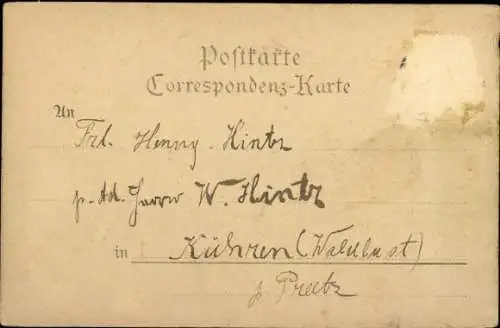 Postkarte
Correspondenz-Karte
An
Frl. Henny Hintz
p. Ad. Herrn W. Hintz
in Kühren (Waldlust)
p Preetz